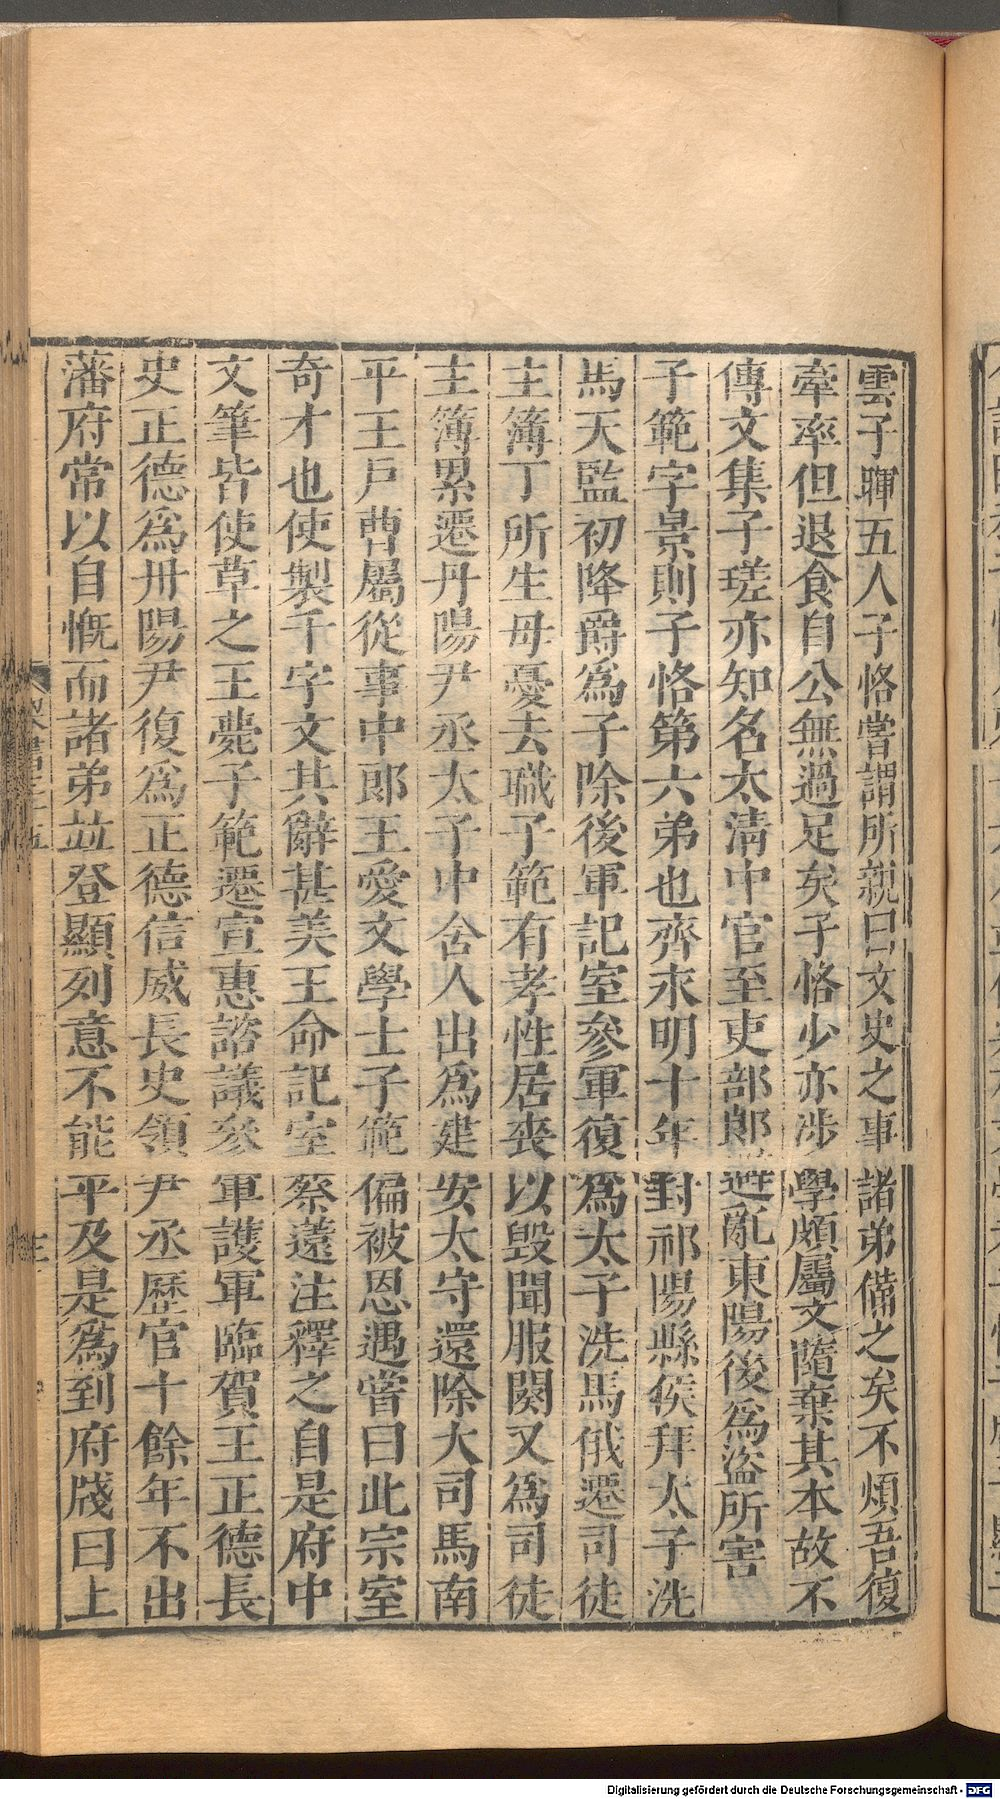 雲子暉五人子恪嘗謂所親曰文史之事諸弟備之矣不煩吾復
牽率但退食自公無過足矣子恪少亦涉學頗屬文隨棄其本故不
傳文集子瑳亦知名太清中官至吏部郎避亂東陽後爲盜所害
子範字景則子恪第六弟也齊永明十年封祁陽縣侯拜太子洗
馬天監初降爵爲子除後軍記室參軍復爲太子洗馬俄遷司徒
主簿丁所生母憂去職子範有孝性居喪以毀聞服闋又爲司徒
主簿累遷丹陽尹丞太子中舍人出爲建安太守還除大司馬南
平王戶曹屬從事中郎王愛文學士子範偏被恩遇嘗曰此宗室
奇才也使製千字文其辭甚美王命記室蔡薳注釋之自是府中
文筆皆使草之王薨子範遷宣惠諮議參軍護軍臨賀王正德長
史正德爲丹陽尹復爲正德信威長史領尹丞歷官十餘年不出
藩府常以自慨而諸弟竝登顯列意不能平及是爲到府牋曰上
Digitalisierung gefördert durch die Deutsche Forschungsgemeinschaft - DFG